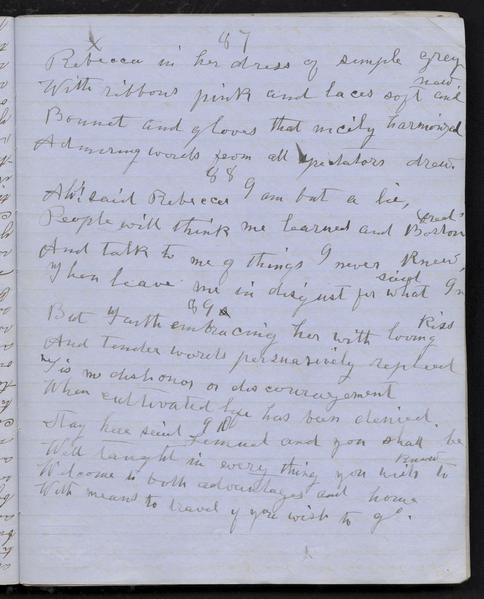 87
x
Rebecca in her dress of simple grey
With ribbons pink and laces soft and
new
Bonnet and gloves that nicely harmonized
Admiring words from all spectators drew.
88
Ah! said Rebecca I am but a lie,
People will think me learned and Boston
bred
And talk to me of things I never knew,
Then leave me in disgust for what I
said
89
But Faith embracing her with loving
kiss
And tender words persuasively replied
'Tis no dishonor or discouragement
When cultivated has been denied.
90
Stay here said Lemuel and you shall be
Well taught in every thing you wish to
know
Welcome to both advantages and home
With means to travel if you wish to go.